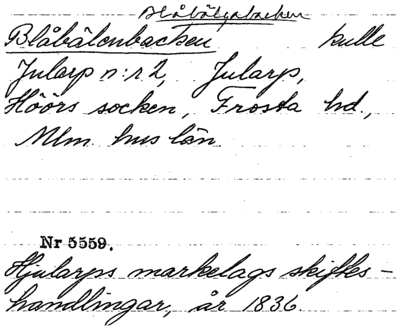 Blåbälgabacken
Blåbälenbacken kulle
Jularp n:r 2, Jularp,
Höörs socken, Frosta hd.,
Mlm. hus län.
Nr 5559.
Hjularps markelags skiftes-
handlingar, år 1836.